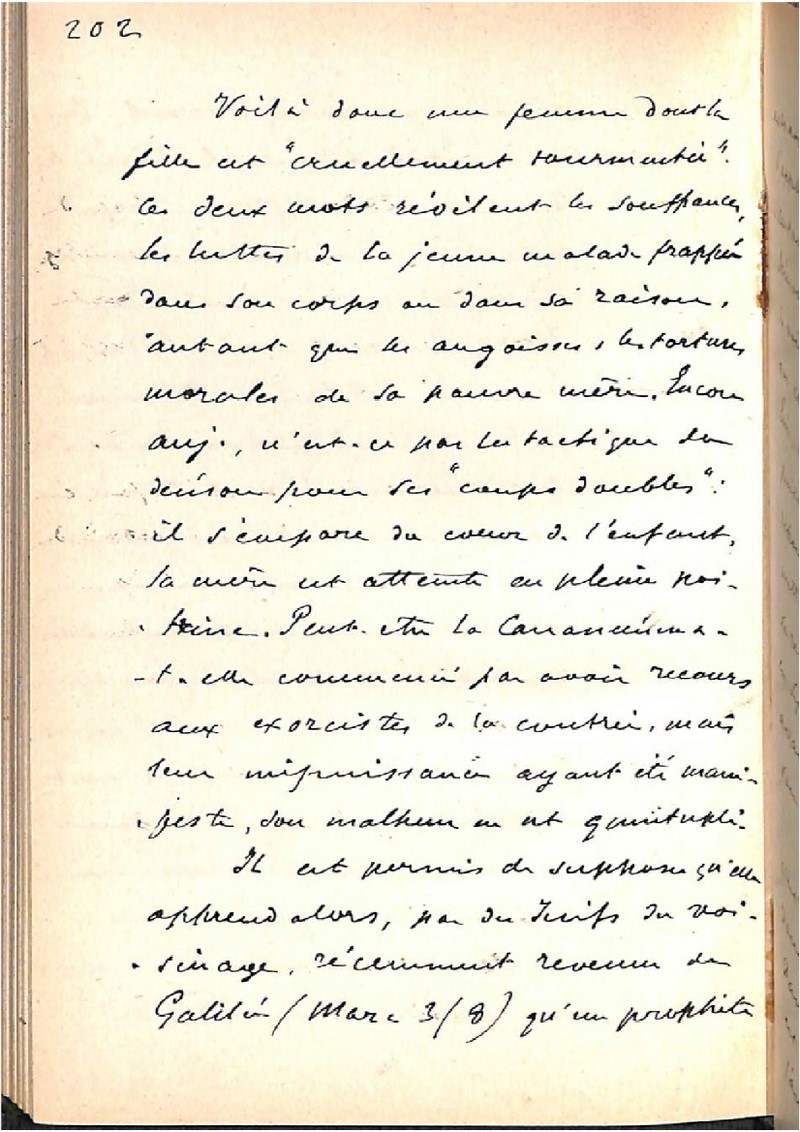 202
Voilà donc une femme dont la
fille est "cruellement tourmentée".
Ces deux mots révèlent les souffrances,
les luttes de la jeune malade frappée
dans son corps ou dans sa raison,
autant que les angoisses, les tortures
morales de sa pauvre mère. Encore
auj., n'est-ce pas la tactique du
démon pour ses "coups doubles":
il s'empare du coeur de l'enfant,
la mère est atteinte en pleine poi-
-trine. Peut-être la Cananéenne a-
-t-elle commencé par avoir recours
aux exorcistes de la contrée, mais
leur impuissance ayant été mani-
-feste, son malheur en est quintuplé.
Il est permis de supposer qu'elle
apprend alors, par des Juifs du voi-
-sinage, récemment revenus de
Galilée (Marc 3/8) qu'un prophète